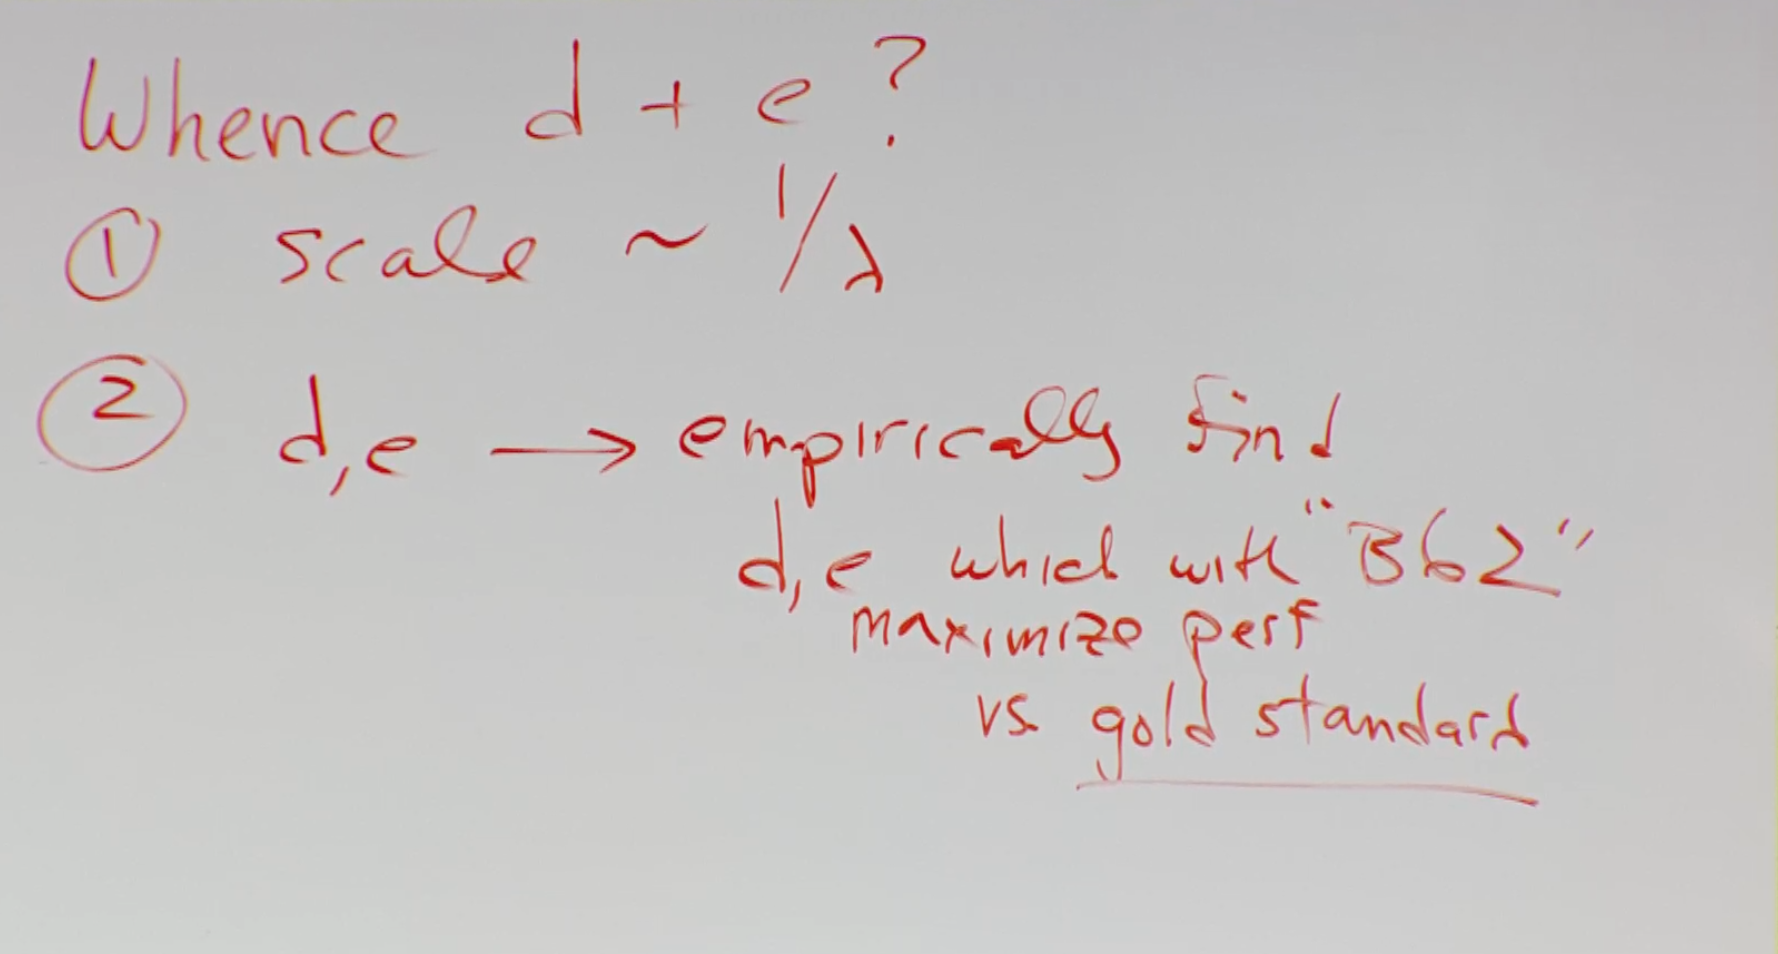 Whence d + e ?
① scale ~ 1/λ
② d,e → empirically find
d,e which with "B62"
maximize perf
vs. gold standard